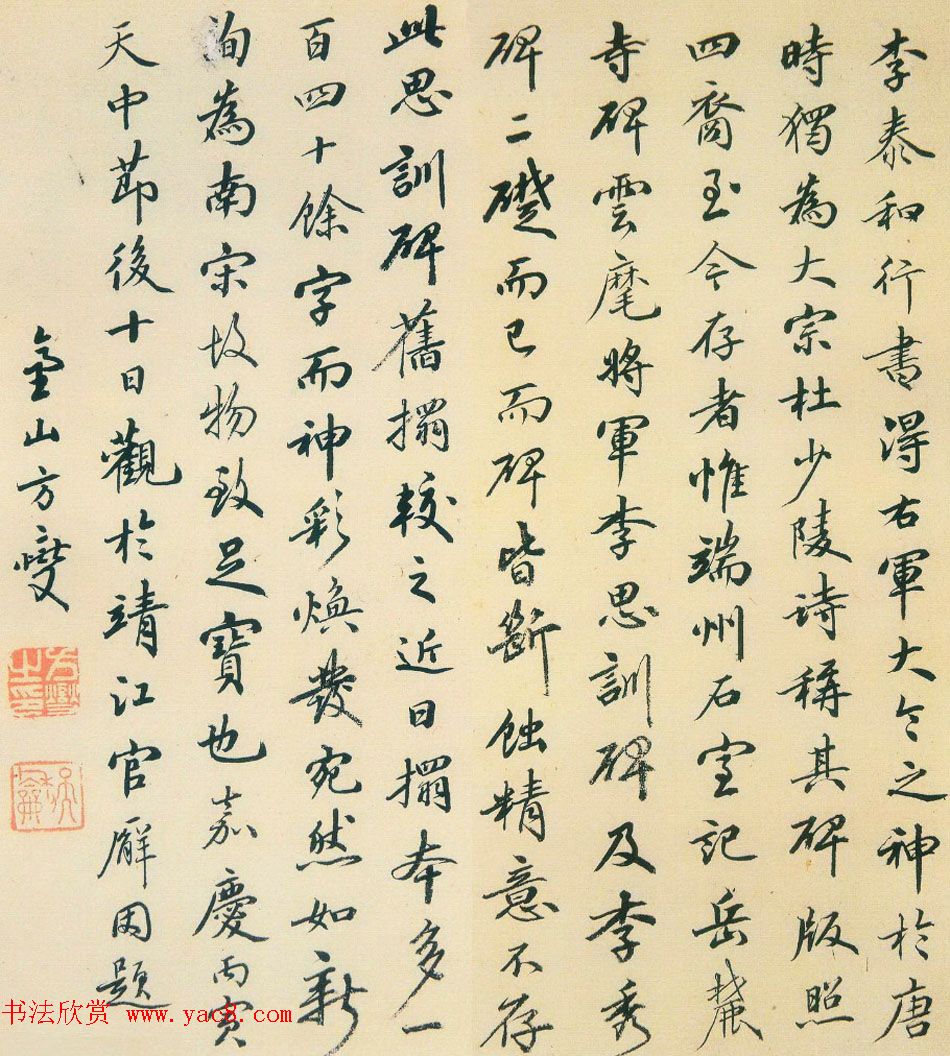 李泰和行書得右軍大令之神於唐
時獨為大宗杜少陵詩稱其碑版照
四裔至今存者惟端州石室記岳麓
寺碑雲麾將軍李思訓碑及李秀
碑二礎而已而碑皆斷蝕精意不存
此思訓碑舊搨較之近日搨本多一
百四十餘字而神彩煥發宛然如新
洵為南宋故物致足寶也嘉慶丙寅
天中節後十日觀於靖江官廨因題
金山方燮
方燮之印
书法欣赏 www.yac8.com